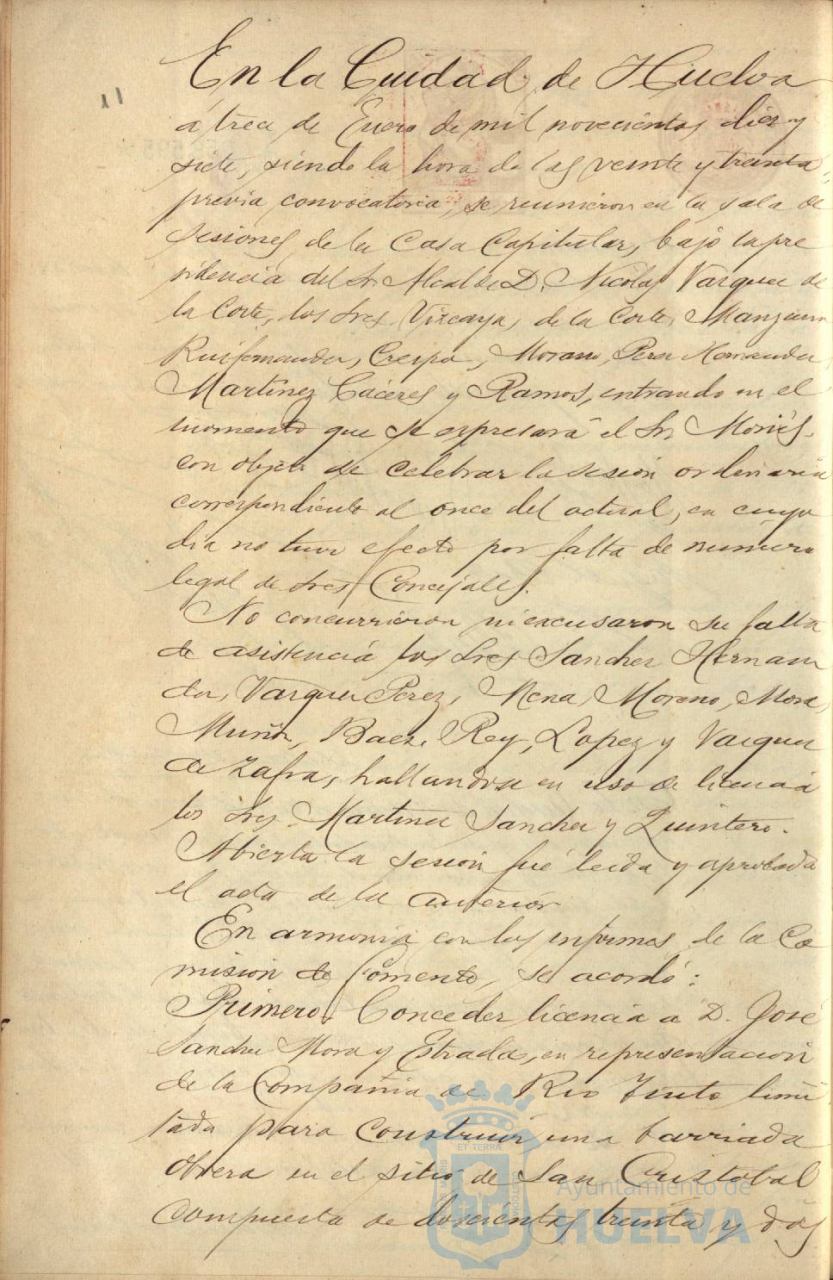 11
En la Cuidad de Huelva
á trece de Enero de mil novecientos diez y
siete, siendo la hora de las veinte y treinta,
previa convocatoria, se reunieron en la sala de
Sesiones de la Casa Capitular, bajo la pre
sidencia del Sr Alcalde D. Nicolas Vazquez de
la Corte, los Sres Vizcaya, de la Corte, Manzano
Ruifernandez, Crespo, Morano, Perez Hernandez
Martínez Cáceres y Ramos, entrando en el
momento que se espresará el Sr Moriés,
con objeto de celebrar la sesión ordinaria
correspondiente al once del actual, en cuyo
dia no tuvo efecto por falta de número
legal de Sres Concejales.
No concurrieron ni excusaron su falta
de asistencia los Sres Sanchez Hernan
dez, Vazquez Perez, Mena, Moreno, Mora,
Muñoz, Baez, Rey, Lopez y Vazquez
de Zafra, hallandose en uso de licencia
los Sres. Martinez Sanchez y Quintero.
Abierta la sesión fué leida y aprobada
el acta de la anterior
En armonia con los informes de la Co
mision de Fomento, se acordó:
Primero. Conceder licencia a D. José
Sanchez Mora y Estrada, en representacion
de la Compañia de Rio Tinto limi
tada para construir una barriada
obrera en el sitio de San Cristobal
compuesta de doscientas treinta y dos
Ayuntamiento de
HUELVA